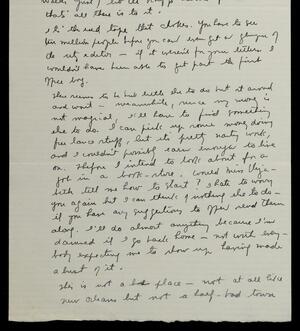 that's all there is to it.
It's the red tape that chokes. You have to see
ten million people before you can even get a glimpse of
the city editor - if it weren't for your letters I
wouldn't have been able to get past the first
office boy.
There seems to be but little else to do but sit around
and wait - meanwhile, since my money is
not magical I'll have to find something
else to do. I can pick up some money doing
free lance stuff, but it's pretty nasty work,
and I couldn't possibly earn enough to live
on. Therefore I intend to look about for a
job in a book-store. Could Miss
tell me how to start? I hate to worry
you again but I can think of nothing else to do -
if you have any suggestions to offer send them
along. I'll do almost anything because I'm
damned if I go back home - not with every-
body expecting me to show up having made
a bust of it.
This is not a bad place - not at all like
New Orleans but not a half-bad town